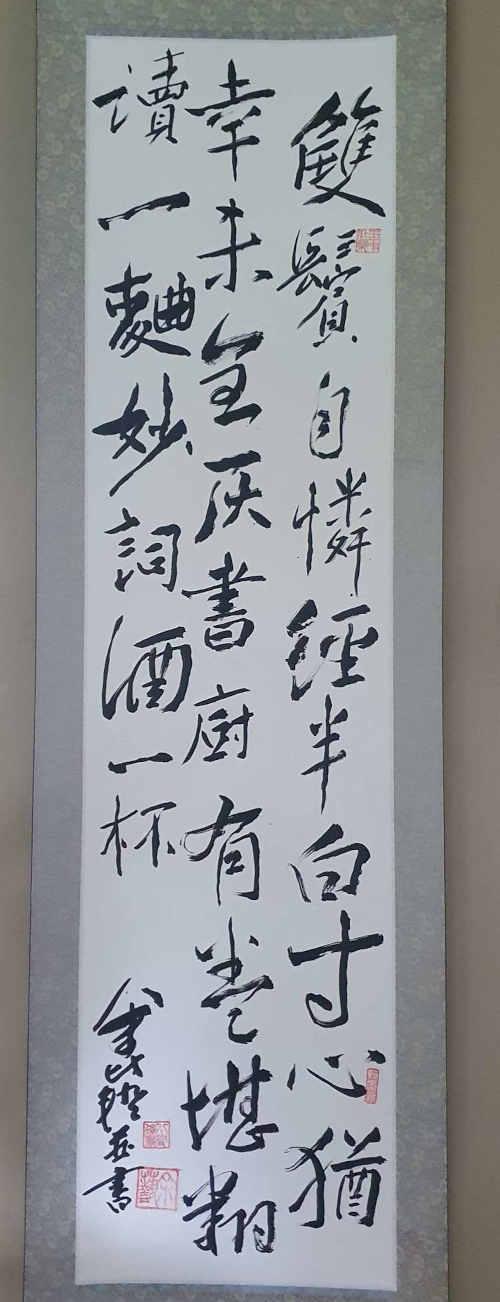 雙鬢自憐經半白寸心猶
幸未全灰書廚有卷堪翻
讀一麯妙詞酒一杯
並書